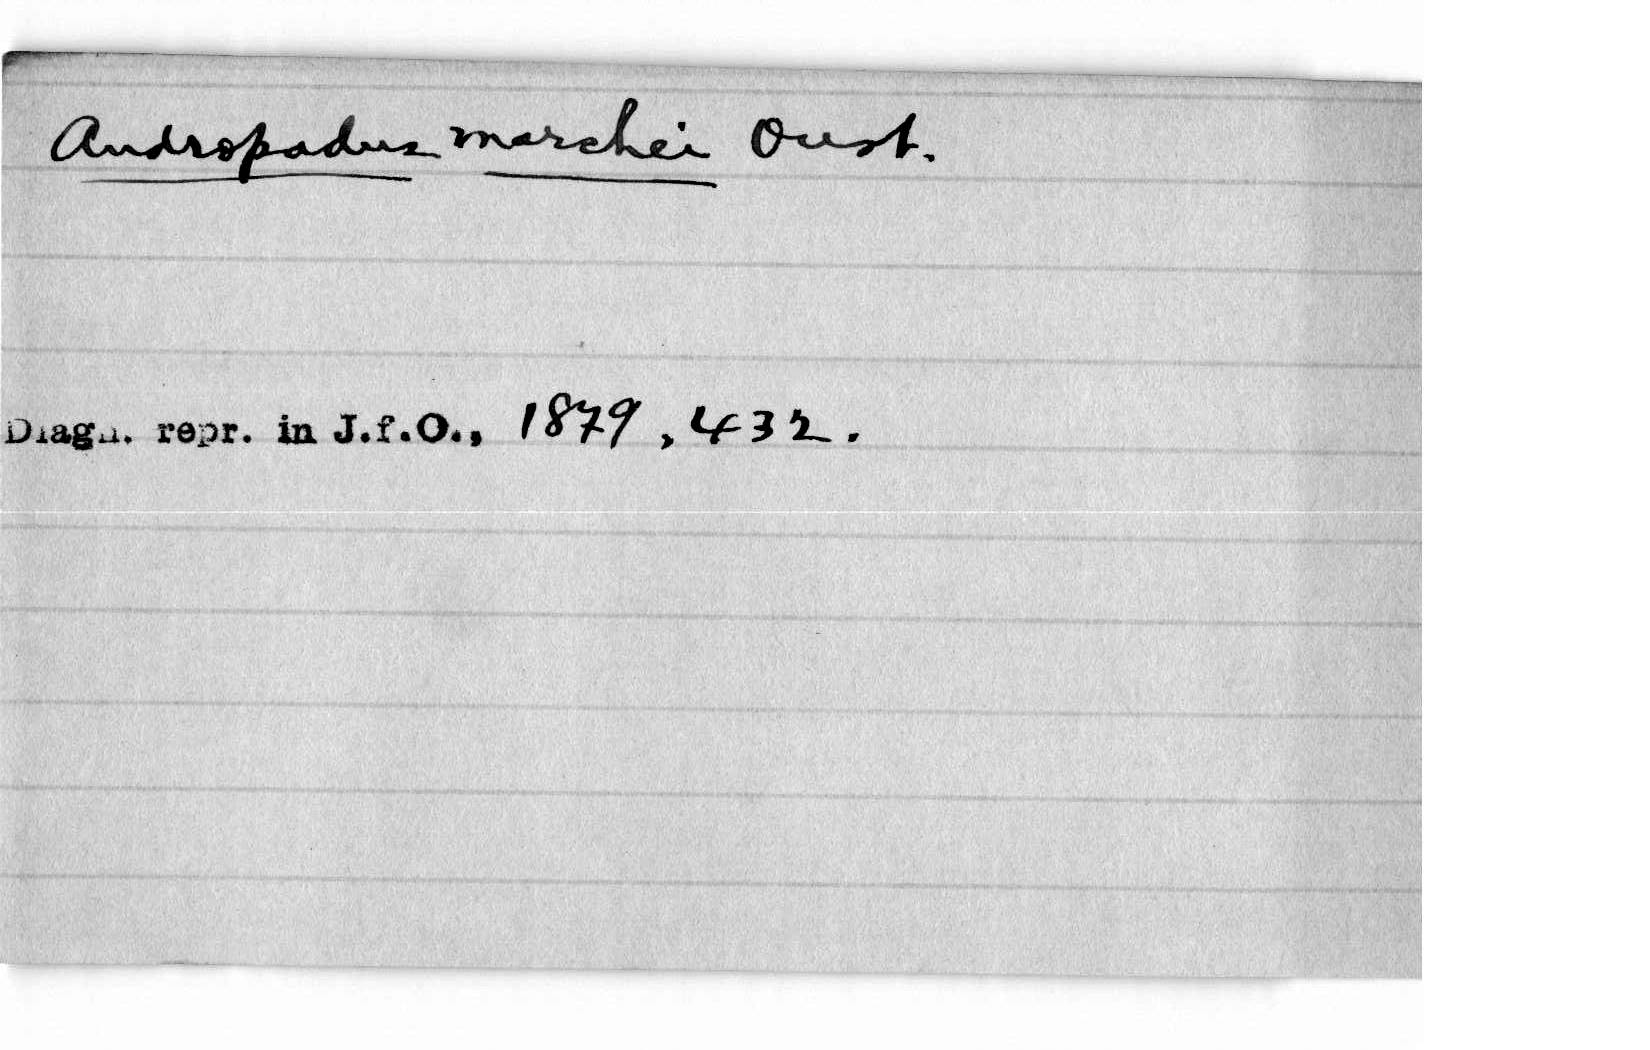 Andropadus marchei Oust.
Diagn. repr. in J.f.O., 1879, 432.